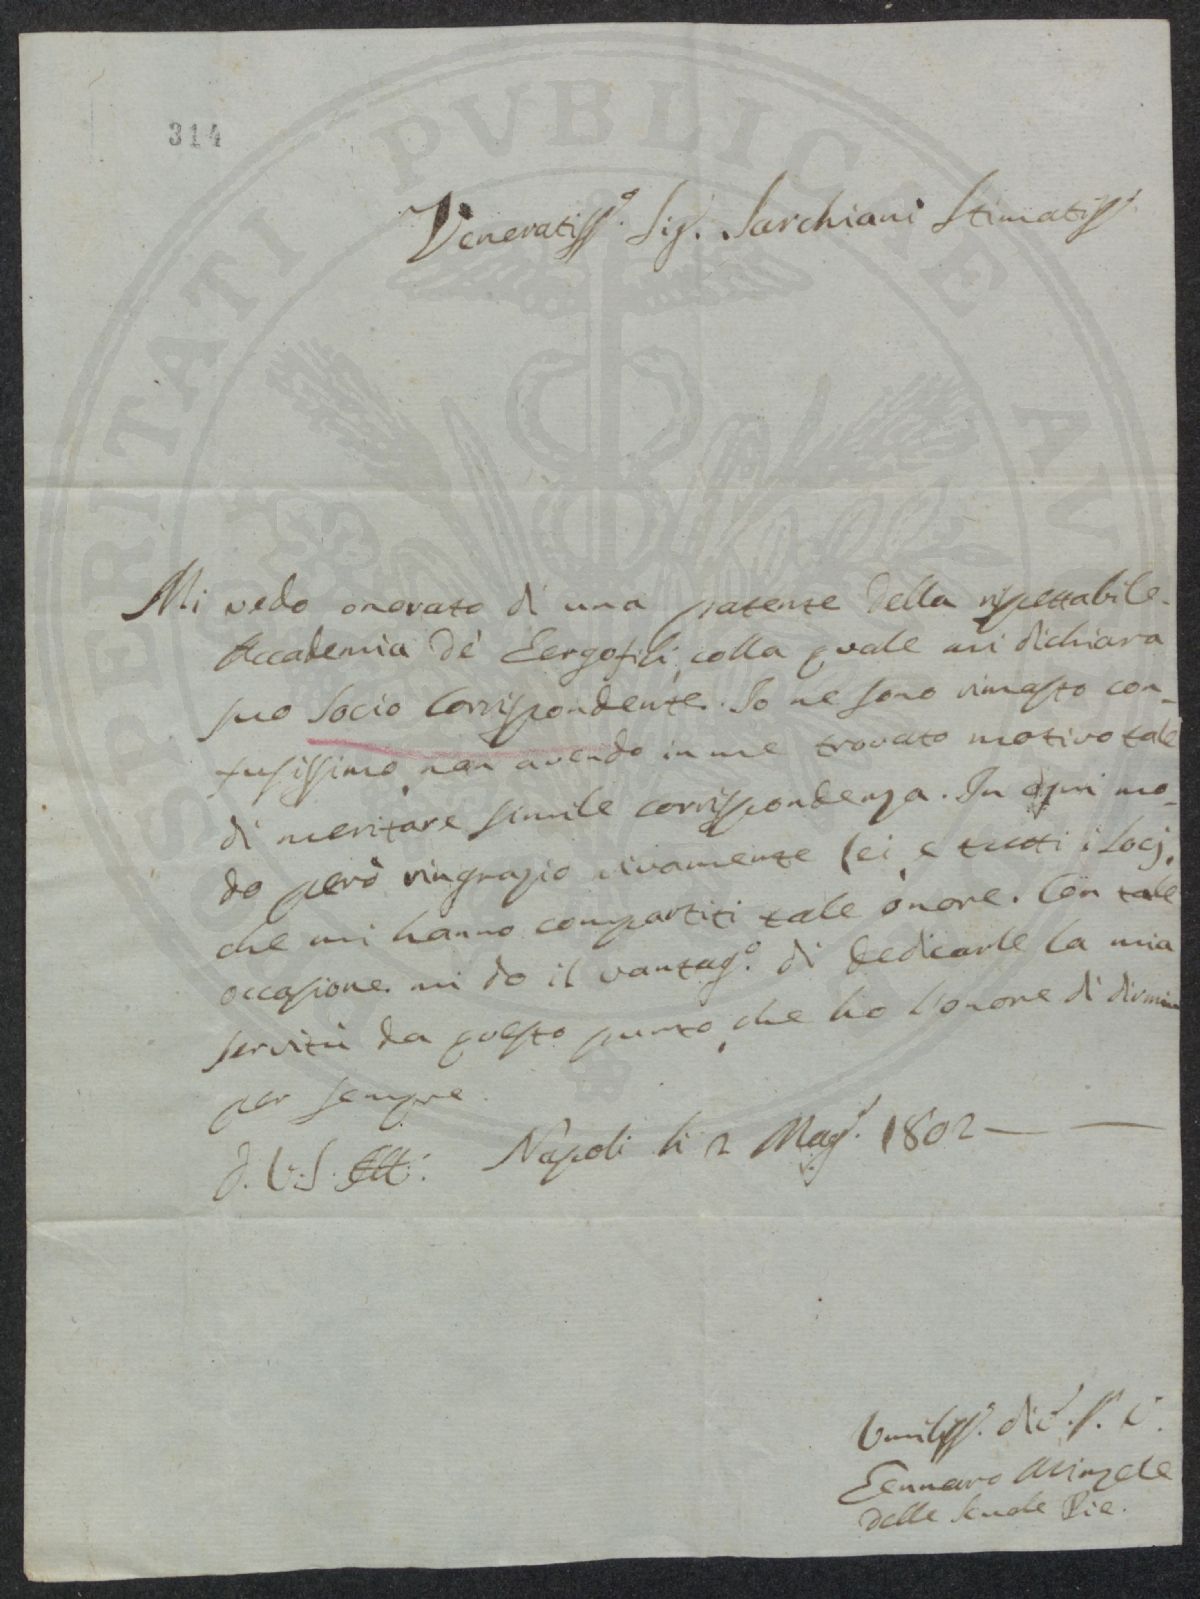 314
Veneratiss.º Sig.r Sarchiani Stimatiss.º
Mi vedo onorato di una patente della rispettabile
Accademia de' Georgofili, colla quale mi dichiara
suo Socio Corrispondente. Io ne sono rimasto con-
fusissimo, non avendo in me trovato motivo tale
di meritare simile corrispondenza. In ogni mo-
do però ringrazio vivamente lei, e tutti i Socj,
che mi hanno compartiti tale onore. Con tale
occasione mi do il vantag.º di dedicarle la mia
servitù da questo punto, che ho l'onore di dirmi
per sempre
D. V. S. Ill:
Napoli li 2 Mag.º 1802
Umiliss.º
Gennaro
delle Scuole Pie.
PROSPERITATI PVBLICAE AVGENDAE